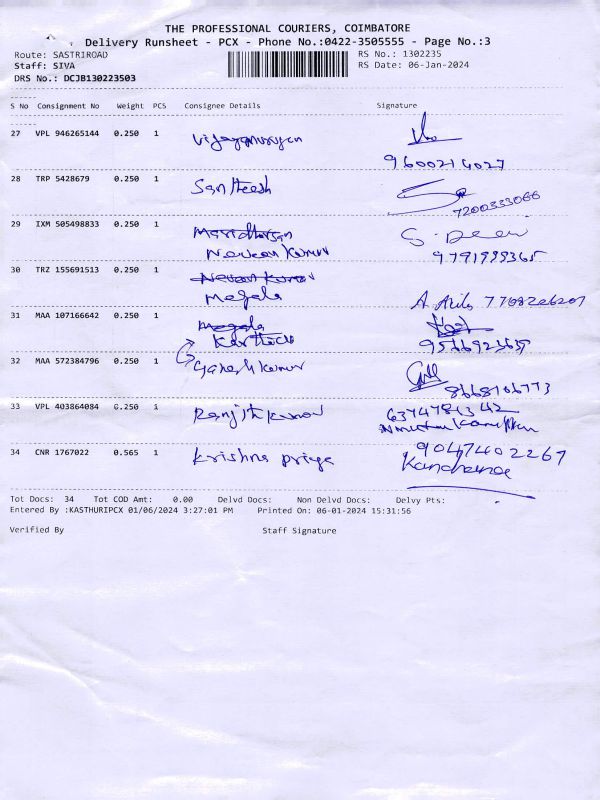 THE PROFESSIONAL COURIERS, COIMBATORE
Delivery Runsheet - PCX - Phone No.:0422-3505555 - Page No.:3
Route: SASTRIROAD
RS No.: 1302235
Staff: SIVA
RS Date: 06-Jan-2024
DRS No.: DCJB130223503
S No Consignment No Weight PCS Consignee Details Signature
27 VPL 946265144 0.250 1
9600214027
28 TRP 5428679 0.250 1 Santheesh
7200333066
29 IXM 505498833 0.250 1 S. Devi
Naveen Kumar 9791999365
30 TRZ 155691513 0.250 1 Naveen Kumar
Megala A.
31 MAA 107166642 0.250 1 Megala
Karthick
32 MAA 572384796 0.250 1 Ganesh Kumar
8668106773
33 VPL 403864084 0.250 1 Ranjith Kumar
34 CNR 1767022 0.565 1 Krishna priya 9047402267
Kanchana
Tot Docs: 34 Tot COD Amt: 0.00 Delvd Docs: Non Delvd Docs: Delvy Pts:
Entered By :KASTHURIPCX 01/06/2024 3:27:01 PM Printed On: 06-01-2024 15:31:56
Verified By Staff Signature